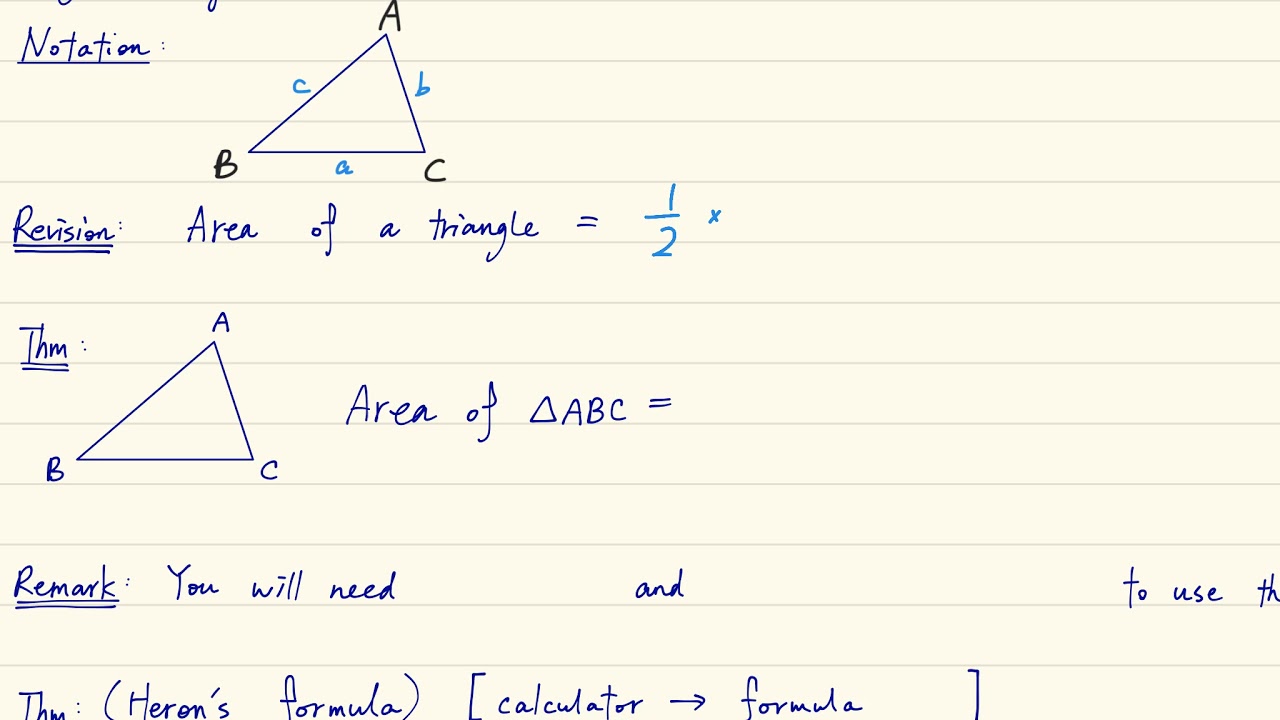 Notation:
A
c
b
B
a
C
Revision: Area of a triangle = 1/2 ×
Thm:
A
Area of △ABC =
B
C
Remark: You will need and to use
Thm: (Heron's formula) [calculator → formula ]